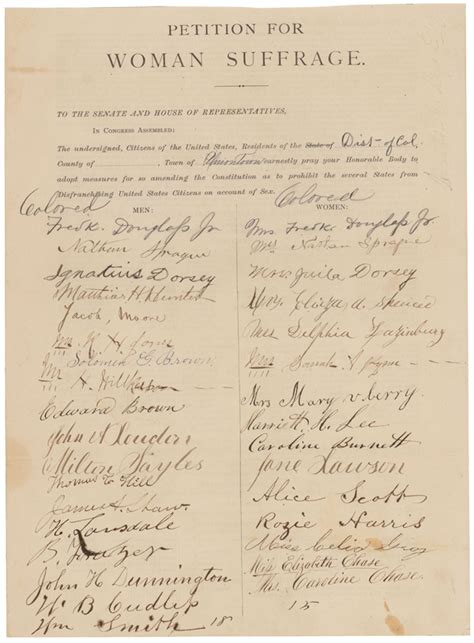 PETITION FOR
WOMAN SUFFRAGE.
TO THE SENATE AND HOUSE OF REPRESENTATIVES,
IN CONGRESS ASSEMBLED:
The undersigned, Citizens of the United States, Residents of the State of Dist. of Col.
County of , Town of Uniontown earnestly pray your Honorable Body to
adopt measures for so amending the Constitution as to prohibit the several States from
Disfranchising United States Citizens on account of Sex.
Colored
MEN:
Fredk. Douglass Jr
Nathan Sprague
Ignatius Dorsey
Matthias H. Hunter
Jacob, Moore
Mr
Mr Solomon G. Brown
H.
Edward Brown
John A Loudon
Milton Sayles
Thomas C Hill
James A. Shaw.
H. Lansdale
B.
John H Dunnington
W B Cudlip
Wm Smith 18
Colored
WOMEN:
Mrs. Fredk Douglass Jr.
Mrs Nathan Sprague
Mrs. Dorsey
Mrs. Eliza A Spencer
Mrs Delphia
Mrs Sarah
Mrs Mary V Berry.
Harriett H. Lee
Caroline Burnett
Jane Lawson
Alice Scott
Rozie Harris
Miss Celia
Miss Elizabeth Chase
Mrs. Caroline Chase.
15